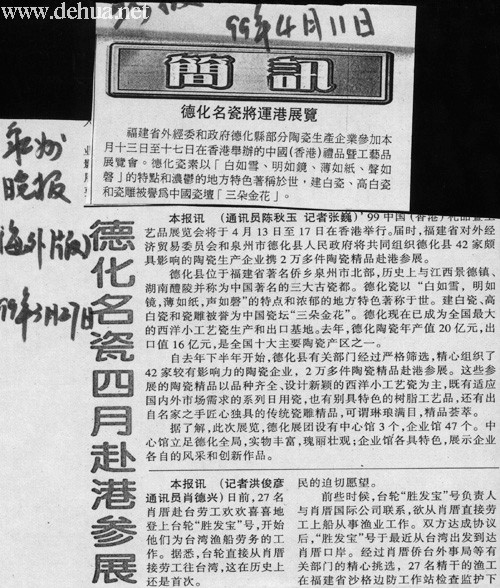 www.dehua.net
99年4月11日
簡訊
德化名瓷將運港展覽
福建省外經委和政府德化縣部分陶瓷生產企業參加本
月十三日至十七日在香港舉辦的中國(香港)禮品暨工藝品
展覽會。德化瓷素以「白如雪、明如鏡、薄如紙、聲如
磬」的特點和濃鬱的地方特色著稱於世，建白瓷、高白瓷
和瓷雕被譽爲中國瓷壇「三朵金花」。
泉州
晚报
海外版)
99年3月27日
德化名瓷四月赴港参展
本报讯 (通讯员陈秋玉 记者张巍) '99中国(香港)礼品暨工
艺品展览会将于4月13日至17日在香港举行。届时，福建省对外经
济贸易委员会和泉州市德化县人民政府将共同组织德化县42家颇
具影响的陶瓷生产企业携2万多件陶瓷精品赴港参展。
德化县位于福建省著名侨乡泉州市北部，历史上与江西景德镇、
湖南醴陵并称为中国著名的三大古瓷都。德化瓷以“白如雪，明如
镜，薄如纸，声如磬”的特点和浓郁的地方特色著称于世。建白瓷、高
白瓷和瓷雕被誉为中国瓷坛“三朵金花”。德化现在已成为全国最大
的西洋小工艺瓷生产和出口基地。去年，德化陶瓷年产值20亿元，出
口值16亿元，是全国十大主要陶瓷产区之一。
自去年下半年开始，德化县有关部门经过严格筛选，精心组织了
42家较有影响力的陶瓷企业，2万多件陶瓷精品赴港参展。这些参
展的陶瓷精品以品种齐全、设计新颖的西洋小工艺瓷为主，既有适应
国内外市场需求的系列日用瓷，也有别具特色的树脂工艺品，还有出
自名家之手匠心独具的传统瓷雕精品，可谓琳琅满目，精品荟萃。
据了解，此次展览，德化展团设有中心馆3个，企业馆47个。中
心馆立足德化全局，实物丰富，瑰丽壮观；企业馆各具特色，展示企业
各自的风采和创新作品。
本报讯 (记者洪俊彦
通讯员肖德兴) 日前，27名
肖厝赴台劳工欢欢喜喜地
登上台轮“胜发宝”号，开始
他们为台湾渔船劳务的工
作。据悉，台轮直接从肖厝
接劳工往台湾，这在历史上
还是首次。
民的迫切愿望。
前些时候，台轮“胜发宝”号负责人
与肖厝国际公司联系，欲从肖厝直接劳
工上船从事渔业工作。双方达成协议
后，“胜发宝”号于最近从台湾出发到达
肖厝口岸。经过肖厝侨台外事局等有
关部门的精心挑选，27名精干的渔工
在福建省沙格边防工作站检查监护下